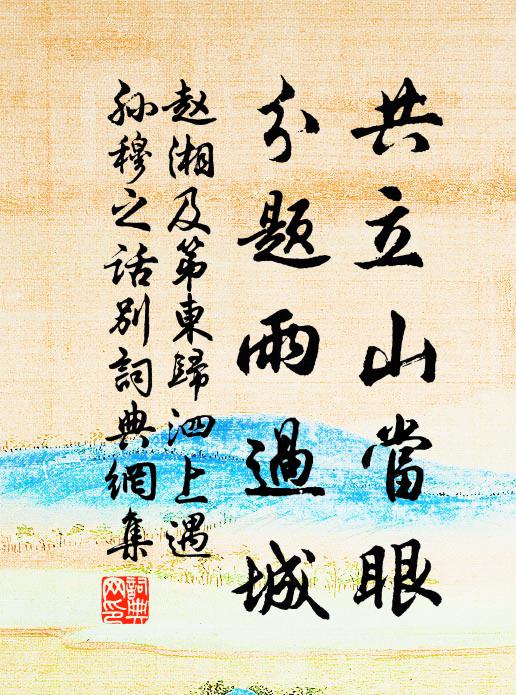 共立山當眼
分題雨過城
赵湘及第東歸泗上遇
孙穆之话别詞典網集
詞典網印